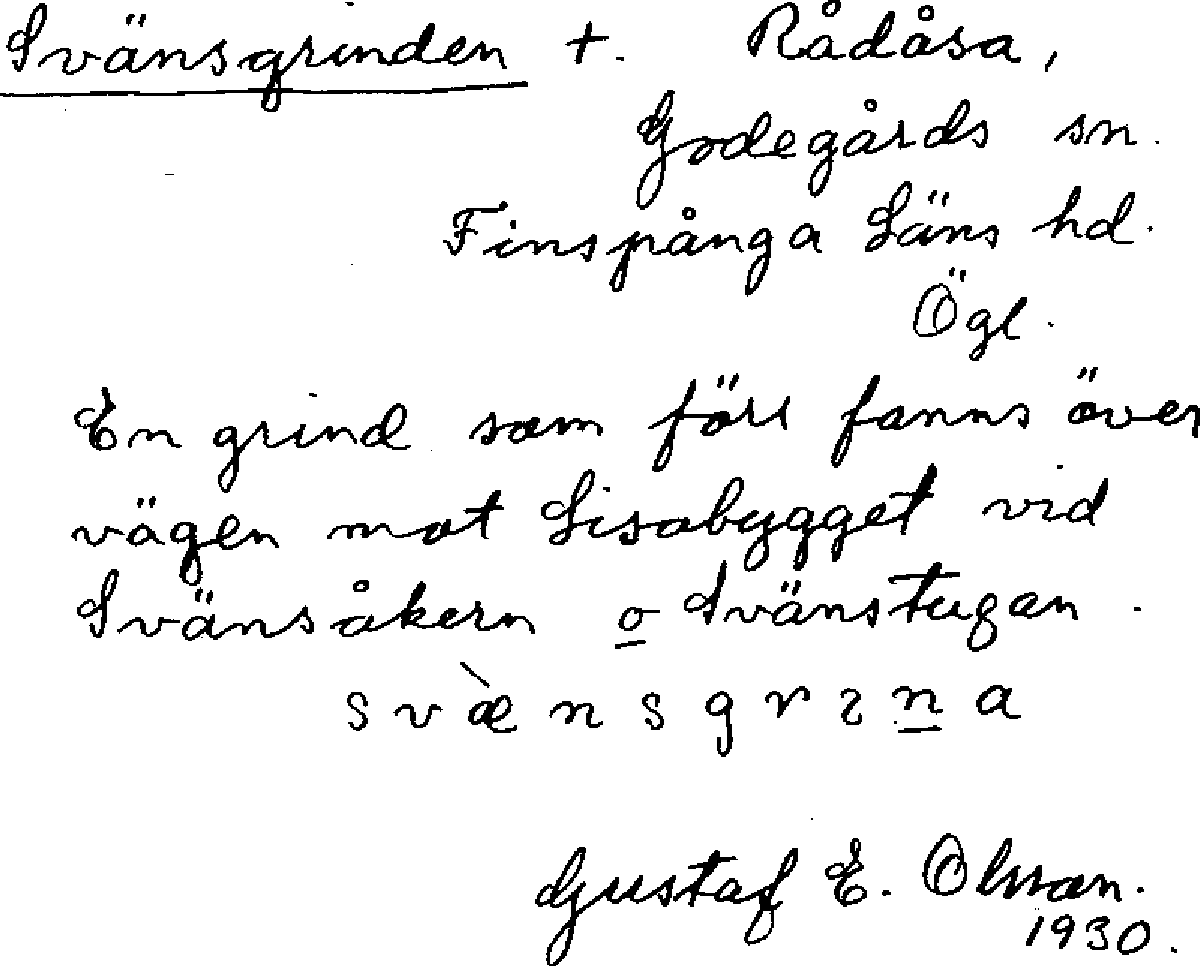 Svänsgrinden +. Rådåsa,
Godegårds sn.
Finspånga Läns hd.
Ögl.
En grind som förr fanns över
vägen mot Lisabygget vid
Svänsåkern o Svänstugan.
svæ̀nsgrɩn̲a
Gustaf E. Olsson.
1930.